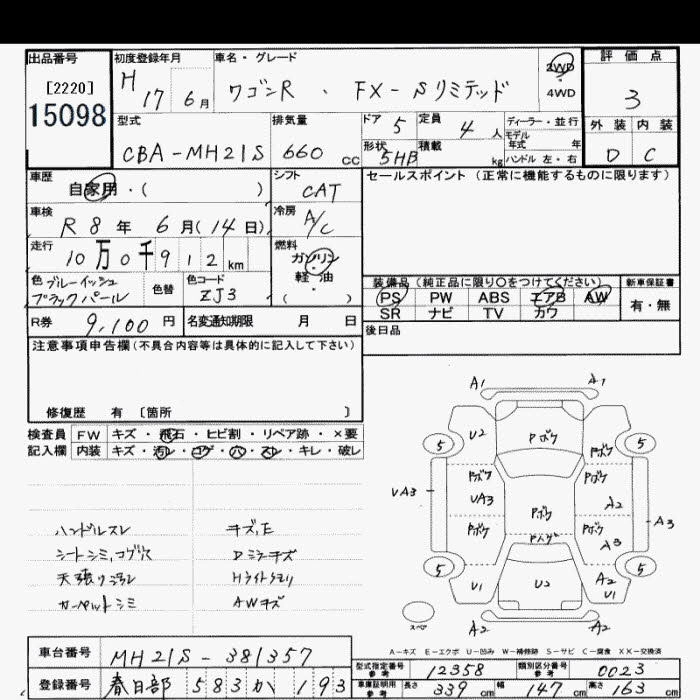 出品番号
[2220]
15098
初度登録年月
H 17 6月
車名・グレード
ワゴンR ・ FX-Sリミテッド
2WD
4WD
評価点
3
外装 内装
D C
型式
CBA-MH21S
排気量
660 cc
ドア 5
定員 4 人
形状 5HB
積載 kg
ディーラー・並行
モデル年式 年
ハンドル 左・右
車歴
自家用・( )
シフト
CAT
車検
R 8 年 6 月 ( 14 日)
冷房
A/C
走行
10万0千912 km
燃料
ガソリン
・
軽・油
( )
色 ブルーイッシュ
ブラックパール
色替
色コード
ZJ3
R券 9,100 円
名変通知期限 月 日
セールスポイント (正常に機能するものに限ります)
装備品(純正品に限り○をつけてください)
PS PW ABS エアB AW
SR ナビ TV カワ
新車保証書
有・無
後日品
注意事項申告欄(不具合内容等は具体的に記入して下さい)
修復歴 有 [箇所 ]
検査員 FW キズ・飛石・ヒビ割・リペア跡・×要
記入欄 内装 キズ・汚レ・コゲ・穴・スレ・キレ・破レ
ハンドルスレ
シートシミ,コゲ穴
天張り汚レ
カーペットシミ
キズ,E
Dミラーキズ
Hライトクモリ
AWキズ
A1 A1
U2 Pボケ
5 5
Pボケ Pボケ
VA3 VA3 A2
Pボケ Pボケ Pボケ
A3 A3
Pハゲ
5 5
U1 U2 A2
U1
スペア
A2 A2
A-キズ E-エクボ U-凹み W-補修跡 S-サビ C-腐食 XX-交換済
車台番号 MH21S-381357
登録番号 春日部 583 か 193
型式指定番号 参考 12358
類別区分番号 参考 0023
車庫証明用 参考 長さ 339 cm 幅 147 cm 高さ 163 cm